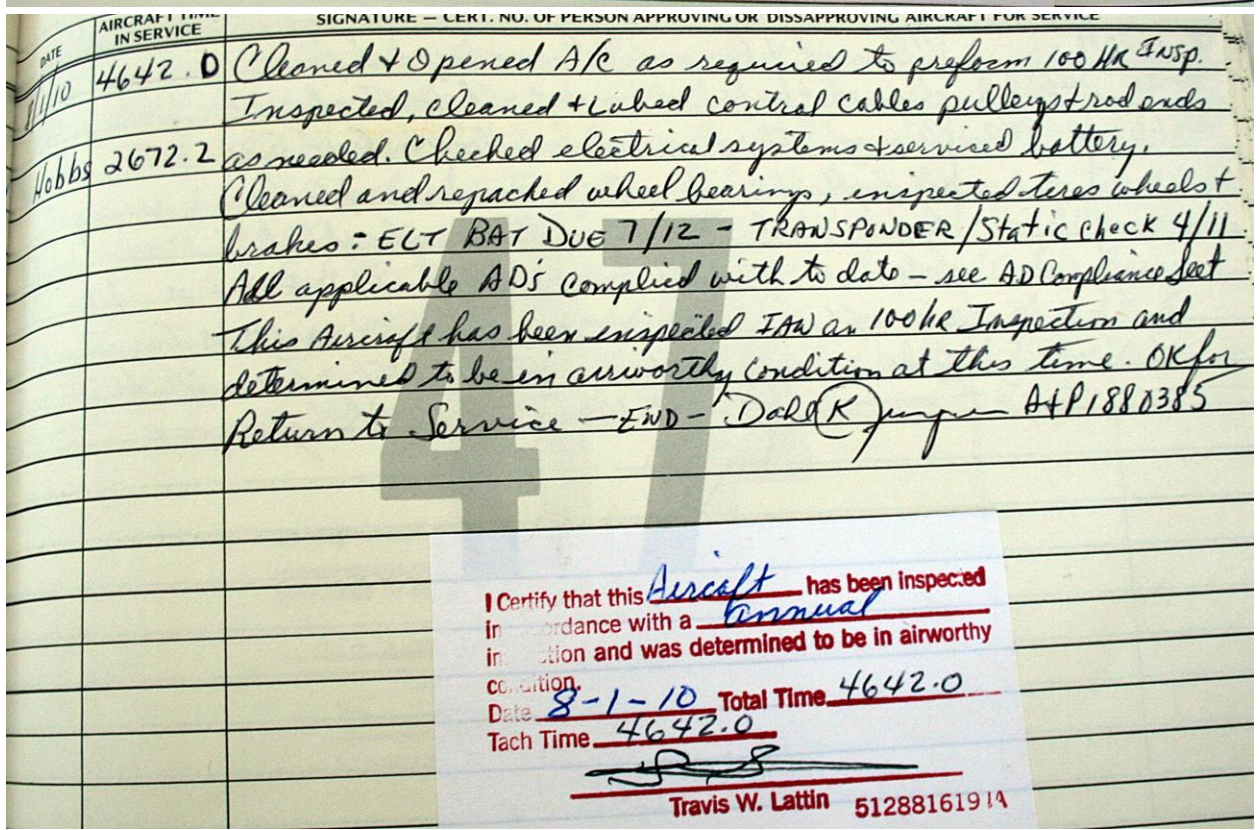 DATE
AIRCRAFT TIME IN SERVICE
SIGNATURE — CERT. NO. OF PERSON APPROVING OR DISSAPPROVING AIRCRAFT FOR SERVICE
8/1/10 4642.0 Cleaned + Opened A/C as required to preform 100 HR INSP.
Inspected, cleaned + Lubed control cables pulleys + rod ends
Hobbs 2672.2 as needed. Checked electrical systems + serviced battery.
Cleaned and repacked wheel bearings, inspected tires wheels +
brakes: ELT BAT DUE 7/12 - TRANSPONDER/Static check 4/11
All applicable ADs complied with to date - see AD Compliance Seet
This Aircraft has been inspected IAW an 100 hr Inspection and
determined to be in airworthy condition at this time. OK for
Return to Service — END - Dale K A&P 1880385
47
I Certify that this Aircaft has been inspected
in accordance with a annual
inspection and was determined to be in airworthy
condition.
Date 8-1-10 Total Time 4642.0
Tach Time 4642.0
Travis W. Lattin 512881619 IA